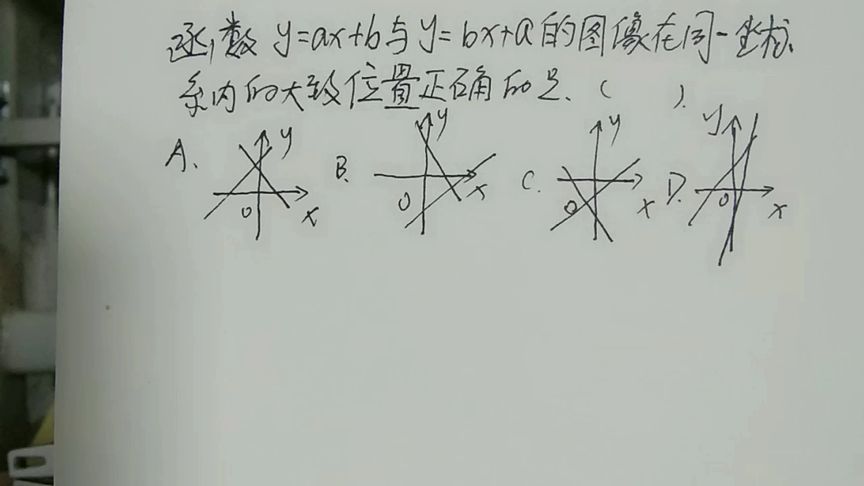 函数 y=ax+b与y=bx+a的图像在同一坐标
系内的大致位置正确的是.( ).
A. y 0 x B. y 0 x C. y 0 x D. y 0 x